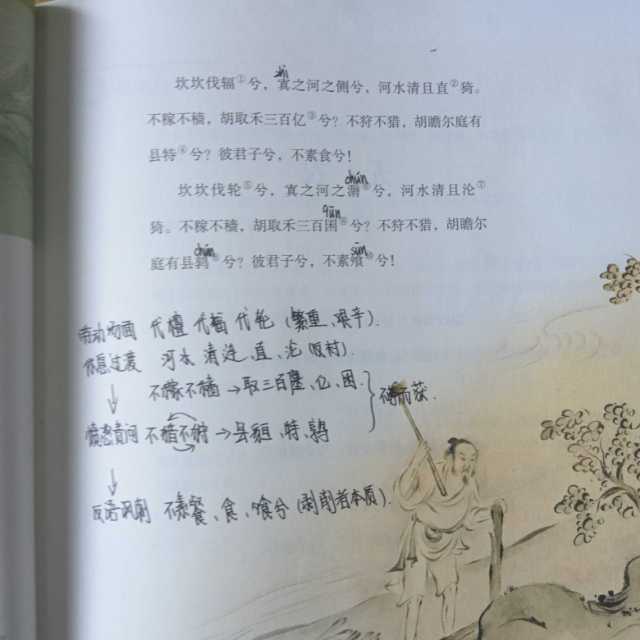 坎坎伐辐①兮，寘之河之侧兮，河水清且直②猗。
不稼不穑，胡取禾三百亿③兮？不狩不猎，胡瞻尔庭有
县特④兮？彼君子兮，不素食兮！
坎坎伐轮⑤兮，寘之河之漘⑥兮，河水清且沦⑦
猗。不稼不穑，胡取禾三百囷⑧兮？不狩不猎，胡瞻尔
庭有县鹑⑨兮？彼君子兮，不素飧⑩兮！
劳动场面 伐檀 伐辐 伐轮 (繁重、艰辛).
休息过渡 河水 清涟、直、沦
↓ 不稼不穑→取三百廛、亿、囷.
愤怒责问 →县貆、特、鹑
↓
反语讽刺 不素餐、食、飧兮 (剥削者本质).